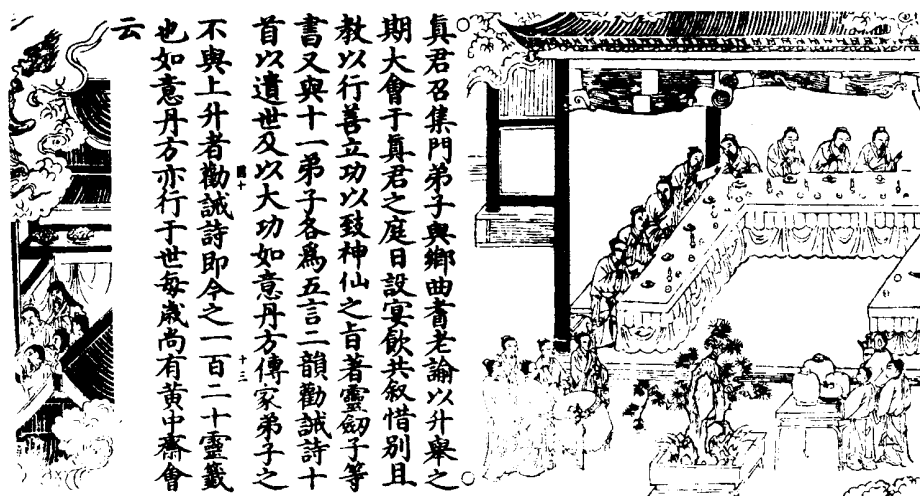 真君召集門弟子與鄉曲耆老論以升舉之
期大會于真君之庭日設宴飲共叙惜別且
教以行善立功以致神仙之旨著靈劒子等
書又與十一弟子各為五言二韻勸誡詩十
首以遺世及以大功如意丹方傳家弟子之
不與上升者勸誡詩即今之一百二十靈籤
也如意丹方亦行于世每歲尚有黄中齋會
云
十三